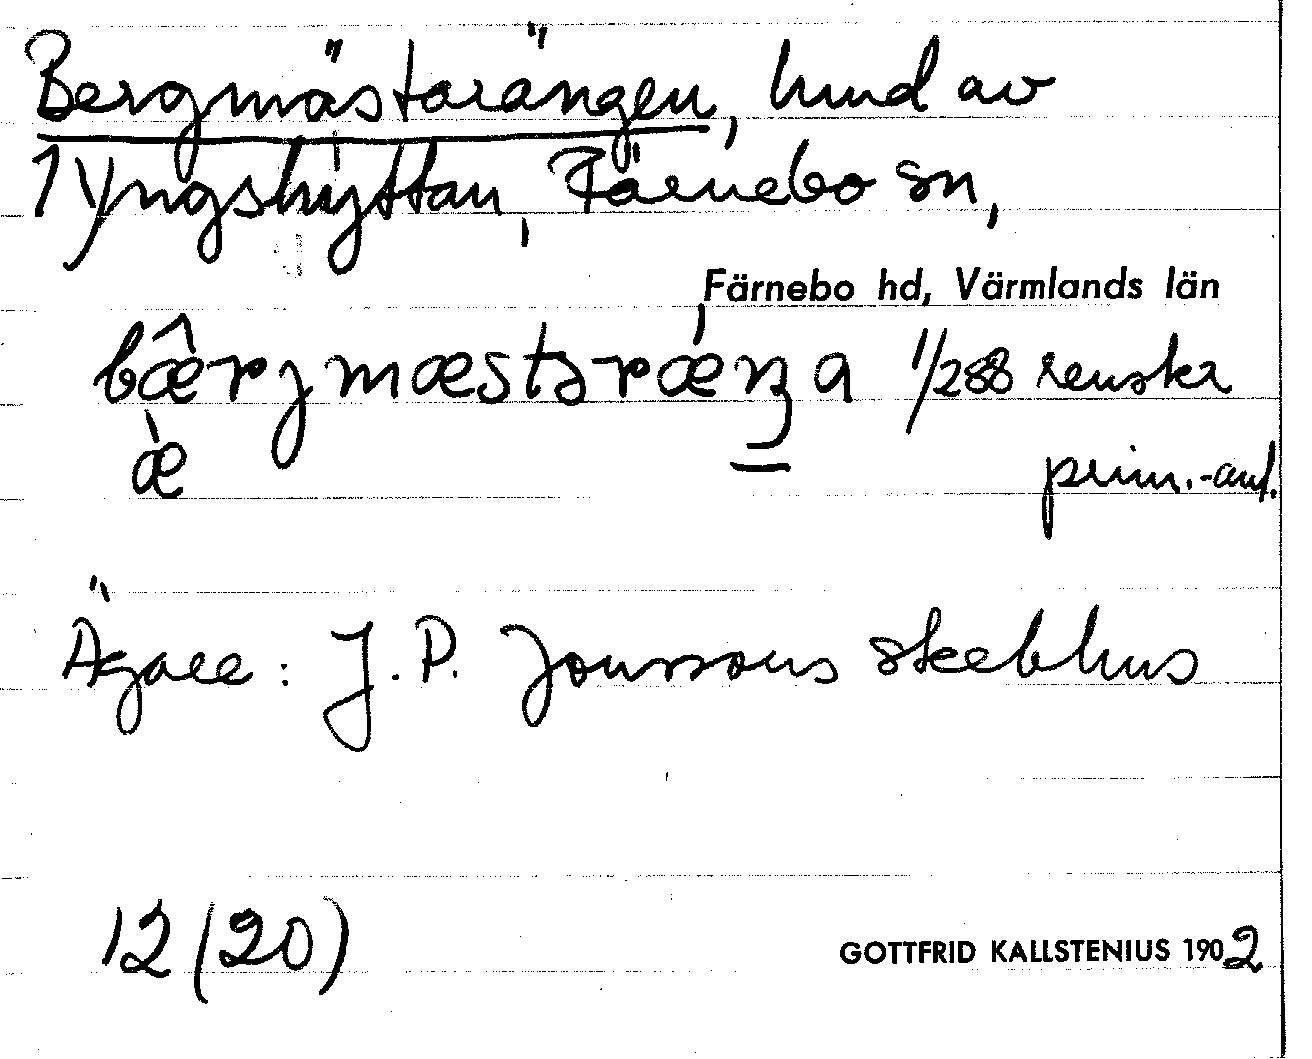 Bergmästarängen, hmd av
1 Yngshyttan, Färnebo sn,
Färnebo hd, Värmlands län
bæ̂rjmæstərǽŋa 1/288 renskr
æ̀ prim.-anf.
Ägare: J. P. Jonssons sterbhus
12 (20)
GOTTFRID KALLSTENIUS 1902